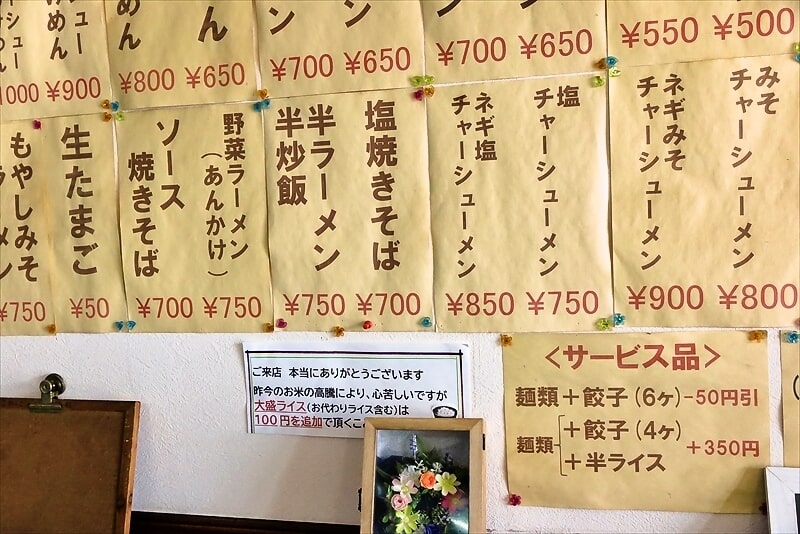 みそ
チャーシューメン
¥800
ネギみそ
チャーシューメン
¥900
塩
チャーシューメン
¥750
ネギ塩
チャーシューメン
¥850
塩焼きそば
¥700
半ラーメン
半炒飯
¥750
野菜ラーメン
(あんかけ)
¥750
ソース
焼きそば
¥700
生たまご
¥50
もやしみそ
¥750
¥500
¥550
¥650
¥700
¥650
¥700
¥650
¥800
¥900
1000
ご来店 本当にありがとうございます
昨今のお米の高騰により、心苦しいですが
大盛ライス(お代わりライス含む)は
100円を追加で頂くこ
<サービス品>
麺類+餃子(6ヶ)-50円引
麺類 +餃子(4ヶ)
+半ライス
+350円